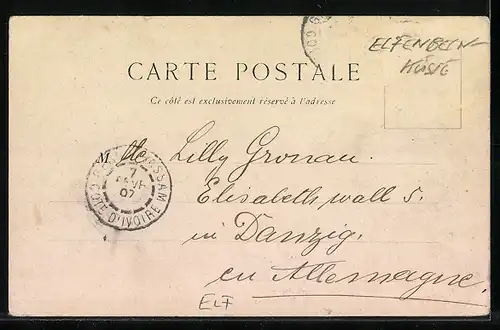 ELFENBEIN-
KÜSTE
CARTE POSTALE
Ce côté est exclusivement réservé à l'adresse
M lle Lilly Gronau.
Elisabeth wall 5.
in Danzig.
en Allemagne.
BASSAM
7
07
CÔTE D'IVOIRE
ELF